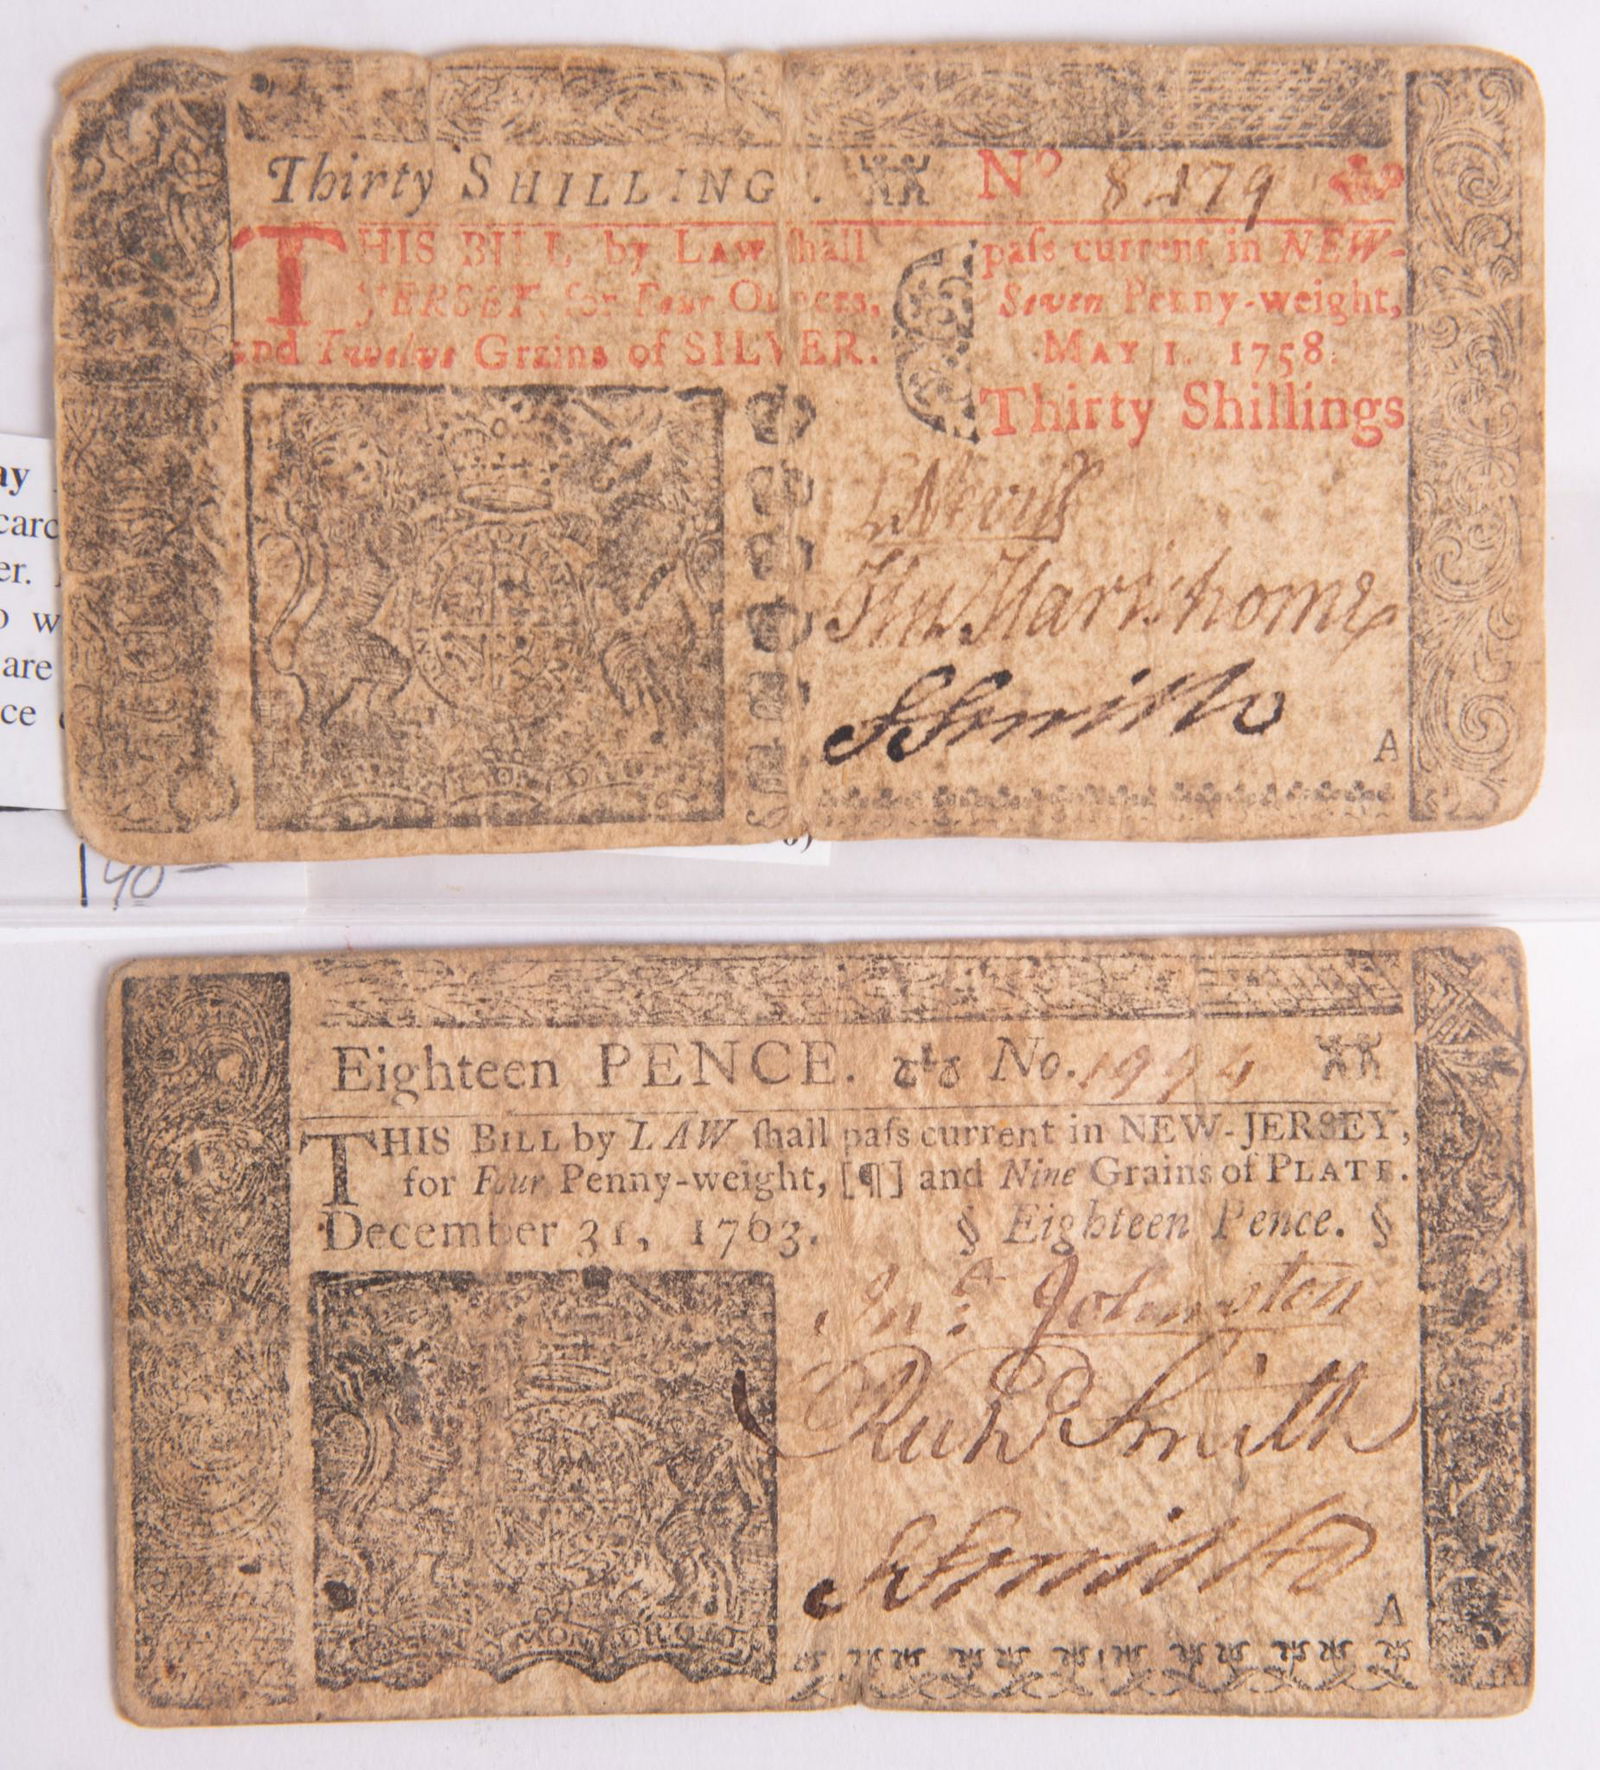 Thirty SHILLINGS. No 8479
THIS BILL by LAW shall pass current in NEW-
JERSEY, for Four Ounces, Seven Penny-weight,
and Twelve Grains of SILVER. MAY 1. 1758.
Thirty Shillings
S Nevill
Hartshorne
SSmith
A
ay
carc
er.
o w
are
ce
140-
Eighteen PENCE. No. 1994
THIS BILL by LAW ſhall paſs current in NEW-JERSEY,
for Four Penny-weight, [¶] and Nine Grains of PLATE.
December 31, 1763. § Eighteen Pence. §
Jno Johnston
Richd Smith
SSmith
A
MON DROIT